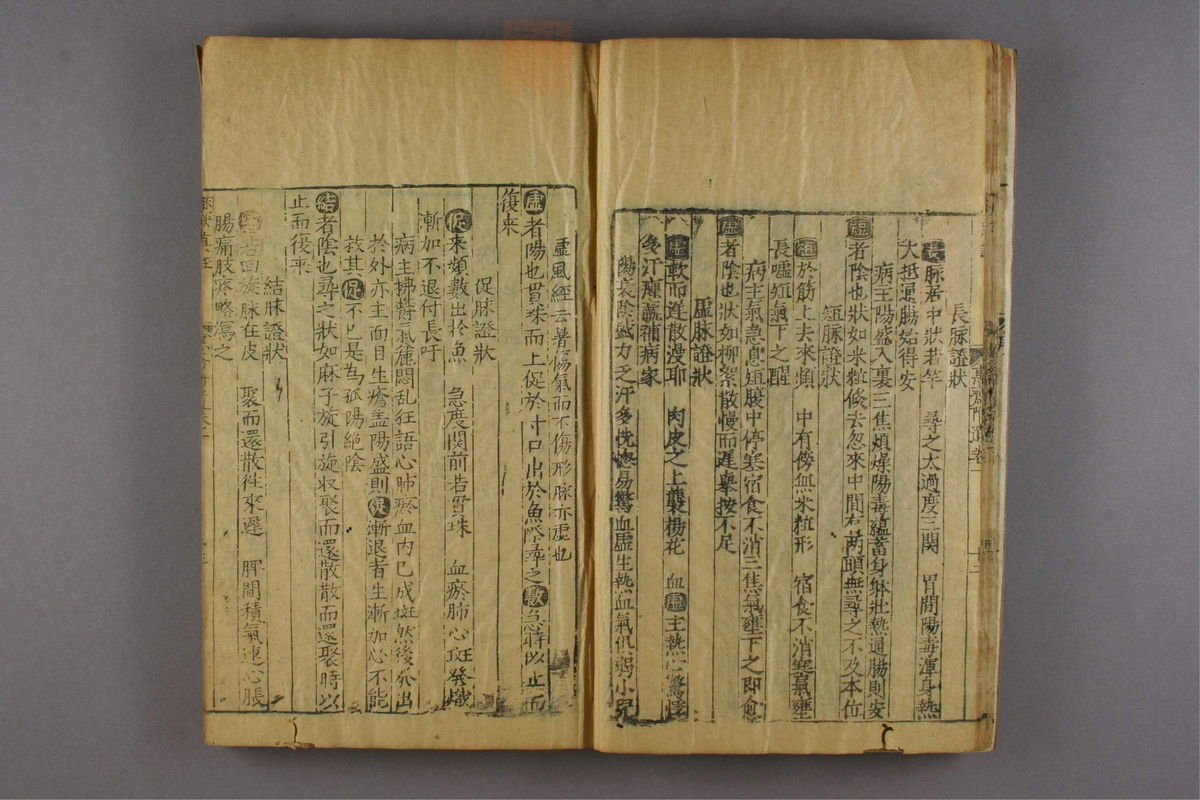 長脉證狀
長脉居中狀若竿　尋之太過度三関　胃間陽毒渾身熱
大抵通腸始得安
病主陽盛入裏三焦煩燥陽毒蘊蓄身躰壯熱通腸則安
者陰也狀如米粒倐去忽來中間有兩頭無尋之不及本位
短脉證狀
短於筋上去來頻　中有傍無米粒形　宿食不消寒氣壅
長噓短氣下之醒
病主氣急息短腹中停寒宿食不消三焦氣壅下之即愈
虛者陰也狀如柳絮散慢而遲舉按不足
虛脉證狀
虛軟而遲散漫耶　肉皮之上襲楊花　血虛主熱心驚悸
多汗癉羸補病家
陽衰陰盛力乏汗多恍惚易驚血虛生熱血氣俱弱小兒
虛風經云暑傷氣而不傷形脉亦虛也
者陽也貫珠而上促於寸口出於魚際尋之數急時似止而
復来
促脉證狀
促来頻數出於魚　急度関前若貫珠　血瘀肺心斑發熾
漸加不退付長吁
病主拂欝氣麄悶乱狂語心肺瘀血内已成斑然後發出
於外亦主面目生瘡盖陽盛則促漸退者生漸加必不能
救其促不已是為孤陽絶陰
結者陰也尋之狀如麻子旋引旋收聚而還散散而還聚時以
止而復来
結脉證狀
若回旋脉在皮　聚而還散徃來遲　脾間積氣連心脹
腸痛肢疼略瀉之